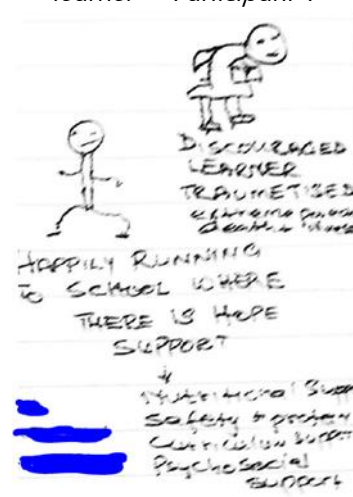 Learner Participant 4
DISCOURAGED
LEARNER
TRAUMETISED
extreme
death +
HAPPILY RUNNING
TO SCHOOL WHERE
THERE IS HOPE
SUPPORT
Nutritional Supp
Safety + protein
Curriculum Support
Psychosocial
Support